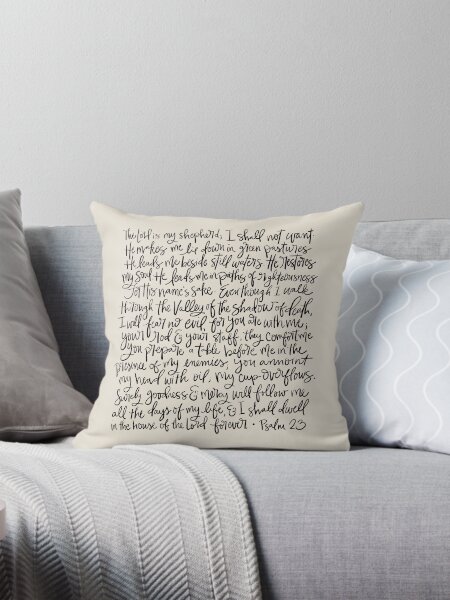 The Lord is my shepherd, I shall not want.
He makes me lie down in green pastures
He leads me beside still waters. He restores
my soul. He leads me in paths of righteousness
for His name's sake. Even though I walk
through the valley of the shadow of death,
I will fear no evil for you are with me,
your rod & your staff, they comfort me
you prepare a table before me in the
presence of my enemies, you annoint
my head with oil, my cup overflows.
Surely goodness & mercy will follow me
all the days of my life, & I shall dwell
in the house of the Lord forever • Psalm 23